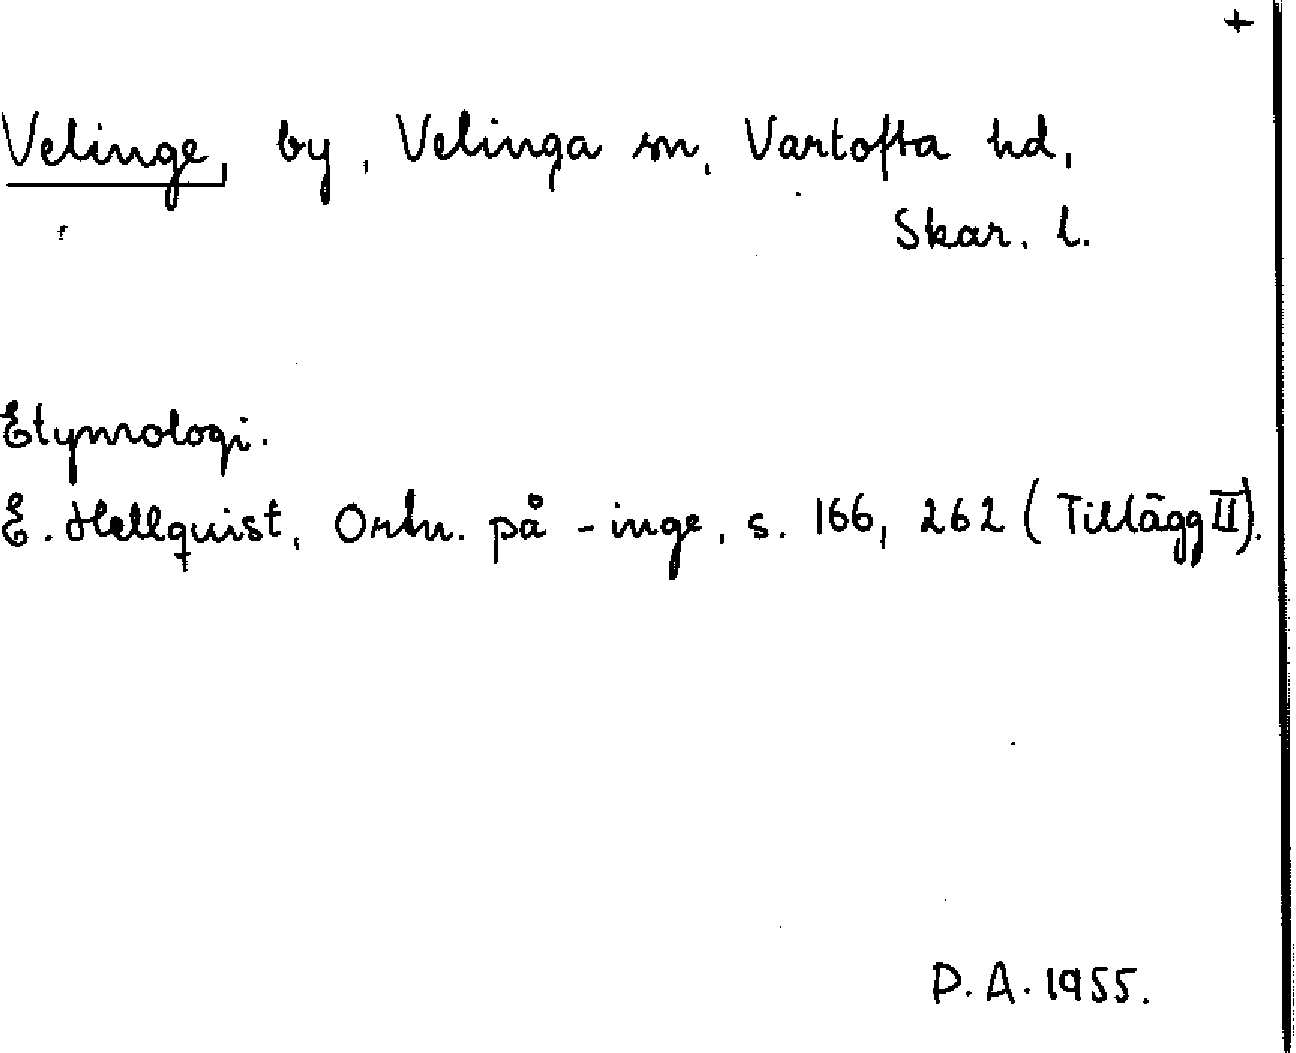 +
Velinge, by, Velinga sn, Vartofta hd,
Skar. l.
Etymologi.
E. Hellquist, Ortn. på -inge, s. 166, 262 (Tillägg II).
P. A. 1955.